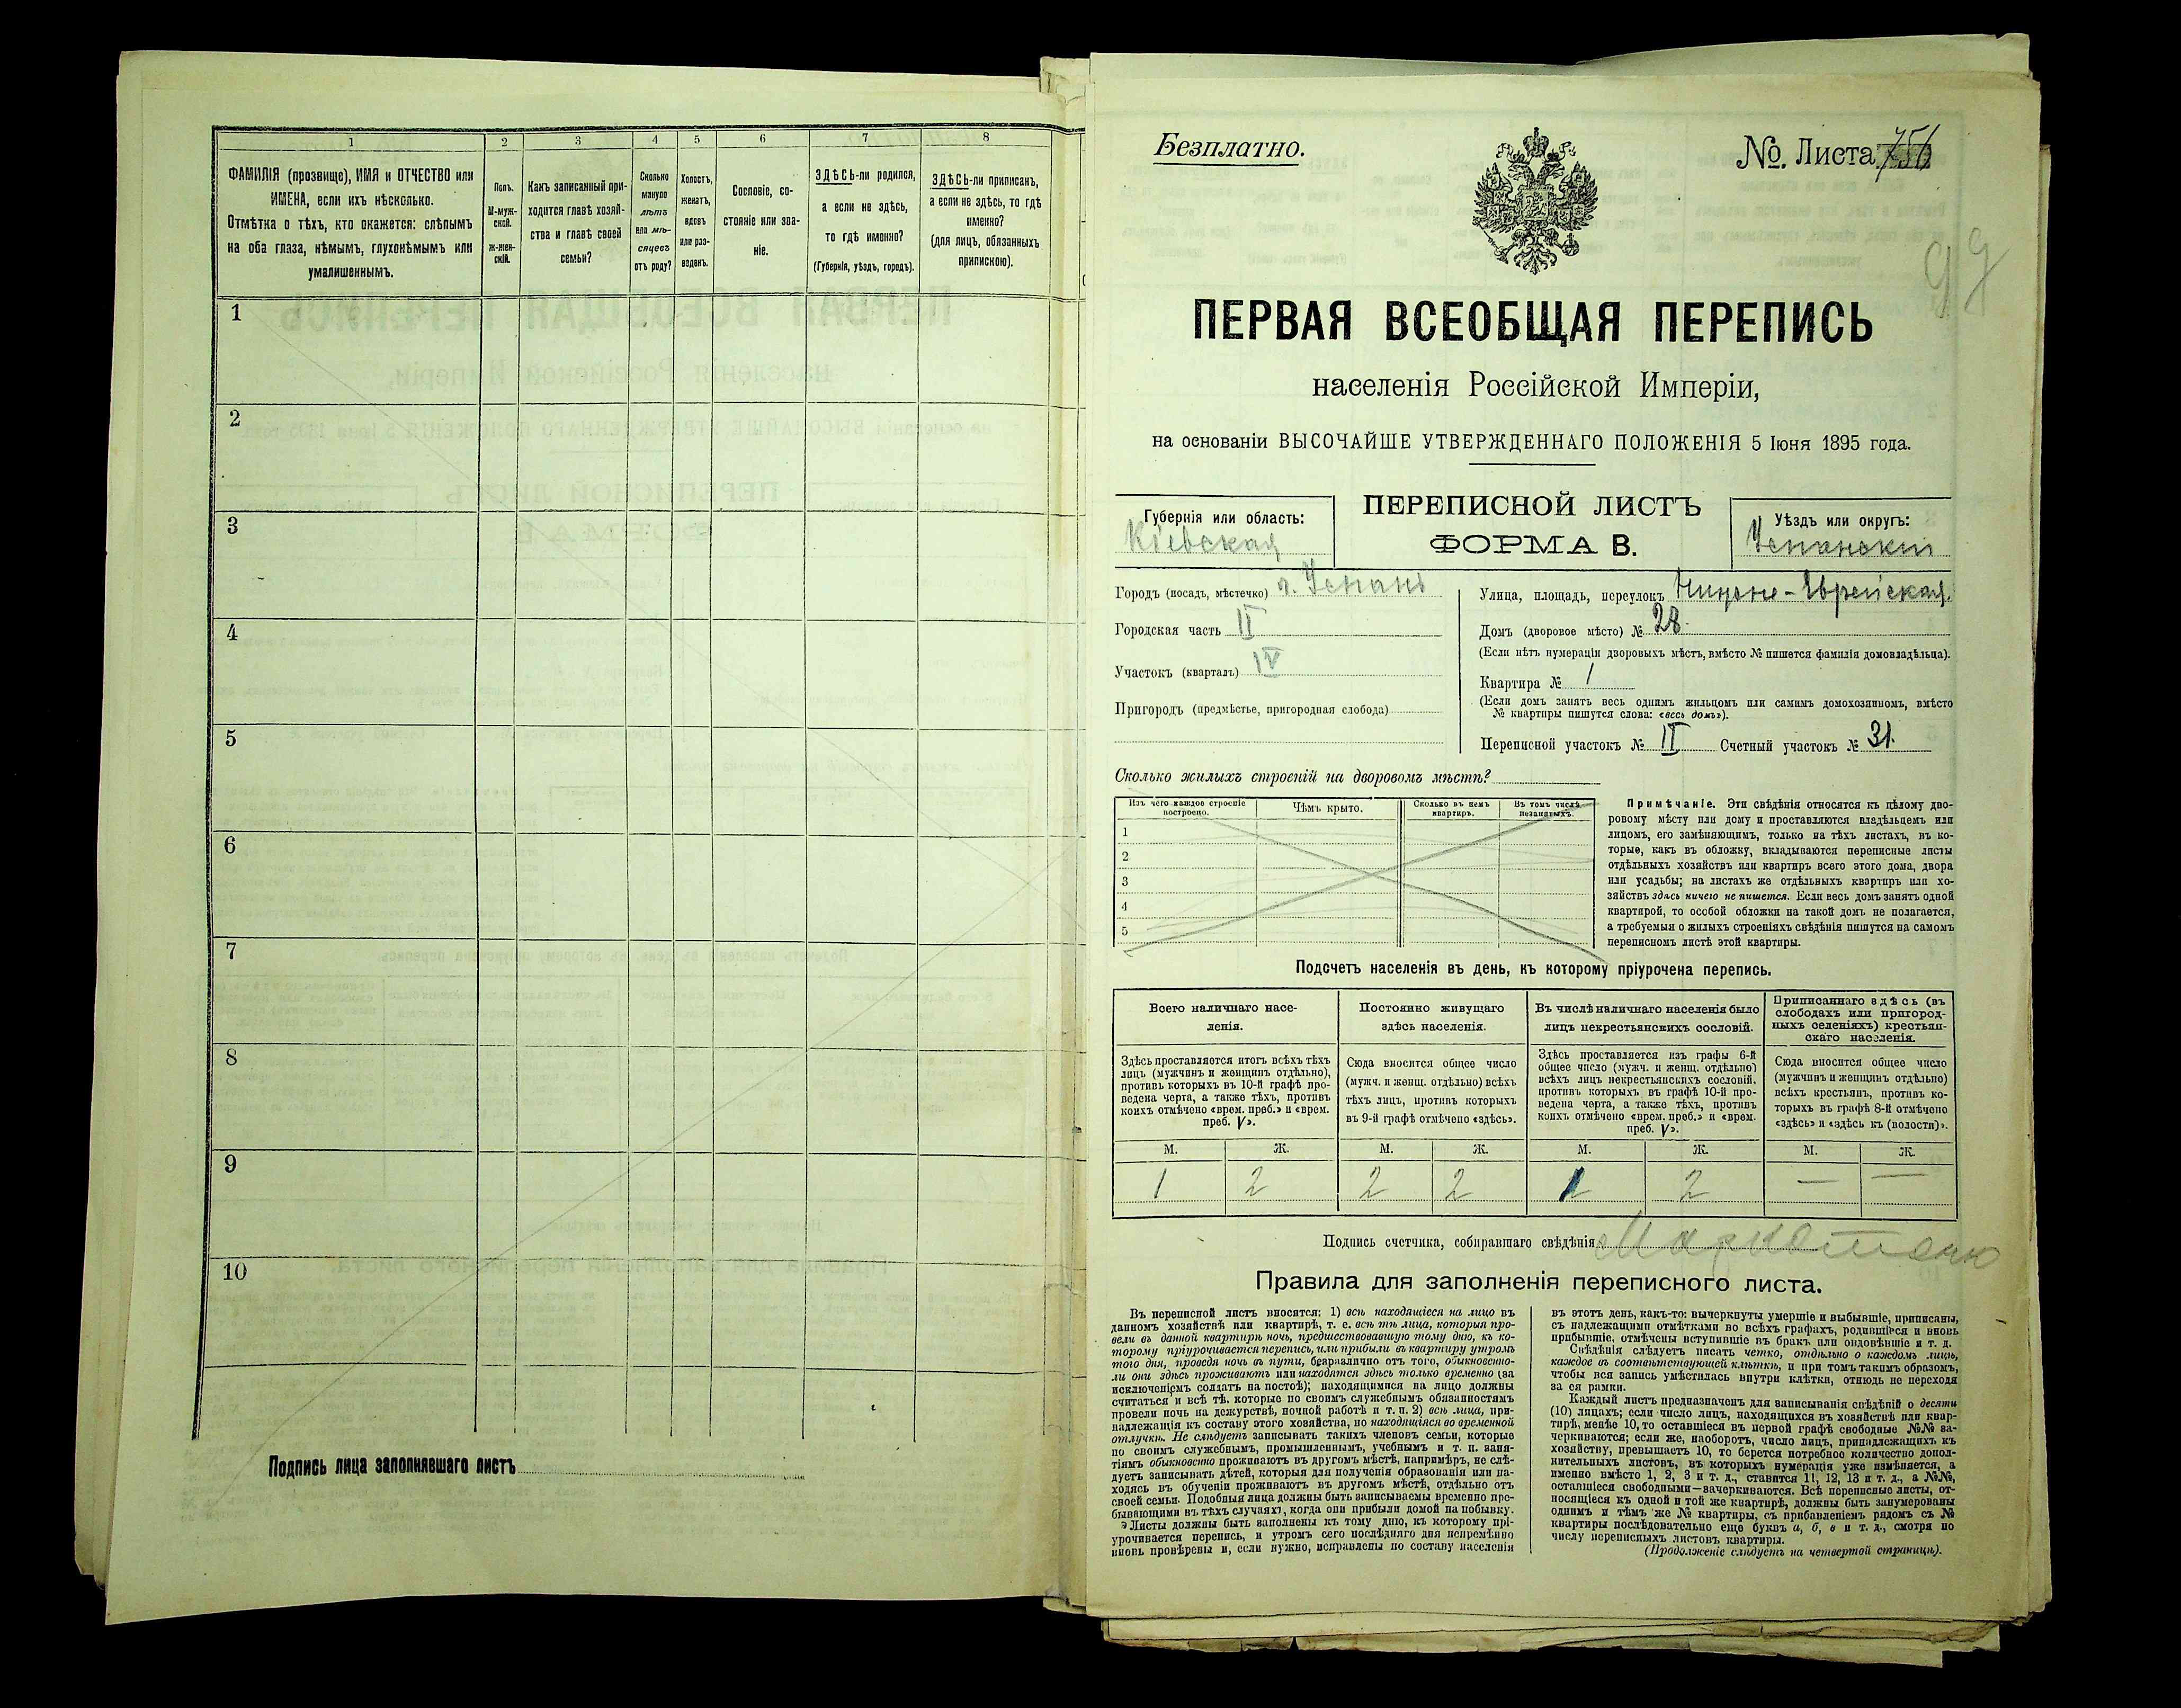 1
2
3
4
5
6
7
8
ФАМИЛІЯ (прозвище), ИМЯ и ОТЧЕСТВО или
ИМЕНА, если ихъ нѣсколько.
Отмѣтка о тѣхъ, кто окажется: слѣпымъ
на оба глаза, нѣмымъ, глухонѣмымъ или
умалишеннымъ.
Полъ.
М-муж-
ской.
ж-жен-
скій.
Какъ записанный при-
ходится главѣ хозяй-
ства и главѣ своей
семьи?
Сколько
минуло
лѣтъ
или мѣ-
сяцевъ
отъ роду?
Холостъ,
женатъ,
вдовъ
или раз-
веденъ.
Сословіе, со-
стояніе или зва-
ніе.
ЗДѢСЬ-ли родился,
а если не здѣсь,
то гдѣ именно?
(Губернія, уѣздъ, городъ).
ЗДѢСЬ-ли приписанъ,
а если не здѣсь, то гдѣ
именно?
(для лицъ, обязанныхъ
припискою).
1
2
3
4
5
6
7
8
9
10
Подпись лица заполнявшаго листъ
Безплатно.
№. Листа 756
99
ПЕРВАЯ ВСЕОБЩАЯ ПЕРЕПИСЬ
населенія Россійской Имперіи,
на основаніи ВЫСОЧАЙШЕ УТВЕРЖДЕННАГО ПОЛОЖЕНІЯ 5 Іюня 1895 года.
Губернія или область:
Кіевская
ПЕРЕПИСНОЙ ЛИСТЪ
ФОРМА В.
Уѣздъ или округъ:
Уманскій
Городъ (посадъ, мѣстечко) г. Умань
Городская часть II
Участокъ (кварталъ) IV
Пригородъ (предмѣстье, пригородная слобода)
Улица, площадь, переулокъ Нижне-Еврейская.
Домъ (дворовое мѣсто) № 28.
(Если нѣтъ нумераціи дворовыхъ мѣстъ, вмѣсто № пишется фамилія домовладѣльца).
Квартира № 1
(Если домъ занятъ весь однимъ жильцомъ или самимъ домохозяиномъ, вмѣсто
№ квартиры пишутся слова: «весь домъ»).
Переписной участокъ № II Счетный участокъ № 31.
Сколько жилыхъ строеній на дворовомъ мѣстѣ?
Изъ чего каждое строеніе
построено.
Чѣмъ крыто.
Сколько въ немъ
квартиръ.
Въ томъ числѣ
незанятыхъ.
1
2
3
4
5
Примѣчаніе. Эти свѣдѣнія относятся къ цѣлому дво-
ровому мѣсту или дому и проставляются владѣльцемъ или
лицомъ, его замѣняющимъ, только на тѣхъ листахъ, въ ко-
торые, какъ въ обложку, вкладываются переписные листы
отдѣльныхъ хозяйствъ или квартиръ всего этого дома, двора
или усадьбы; на листахъ же отдѣльныхъ квартиръ или хо-
зяйствъ здѣсь ничего не пишется. Если весь домъ занятъ одной
квартирой, то особой обложки на такой домъ не полагается,
а требуемыя о жилыхъ строеніяхъ свѣдѣнія пишутся на самомъ
переписномъ листѣ этой квартиры.
Подсчетъ населенія въ день, къ которому пріурочена перепись.
Всего наличнаго насе-
ленія.
Здѣсь проставляется итогъ всѣхъ тѣхъ
лицъ (мужчинъ и женщинъ отдѣльно),
противъ которыхъ въ 10-й графѣ про-
ведена черта, а также тѣхъ, противъ
коихъ отмѣчено «врем. преб.» и «врем.
преб. V».
Постоянно живущаго
здѣсь населенія.
Сюда вносится общее число
(мужч. и женщ. отдѣльно) всѣхъ
тѣхъ лицъ, противъ которыхъ
въ 9-й графѣ отмѣчено «здѣсь».
Въ числѣ наличнаго населенія было
лицъ некрестьянскихъ сословій.
Здѣсь проставляется изъ графы 6-й
общее число (мужч. и женщ. отдѣльно)
всѣхъ лицъ некрестьянскихъ сословій.
противъ которыхъ въ графѣ 10-й про-
ведена черта, а также тѣхъ, противъ
коихъ отмѣчено «врем. преб.» и «врем.
преб. V».
Приписаннаго здѣсь (въ
слободахъ или пригород-
ныхъ селеніяхъ) крестьян-
скаго населенія.
Сюда вносится общее число
(мужчинъ и женщинъ отдѣльно)
всѣхъ крестьянъ, противъ ко-
торыхъ въ графѣ 8-й отмѣчено
«здѣсь» и «здѣсь къ (волости)».
М. Ж. М. Ж. М. Ж. М. Ж.
1 2 2 2 1 2 — —
Подпись счетчика, собиравшаго свѣдѣнія
Правила для заполненія переписного листа.
Въ переписной листъ вносятся: 1) всѣ находящіеся на лицо въ
данномъ хозяйствѣ или квартирѣ, т. е. всѣ тѣ лица, которыя про-
вели въ данной квартирѣ ночь, предшествовавшую тому дню, къ ко-
торому пріурочивается перепись, или прибыли въ квартиру утромъ
того дня, проведя ночь въ пути, безразлично отъ того, обыкновенно-
ли они здѣсь проживаютъ или находятся здѣсь только временно (за
исключеніемъ солдатъ на постоѣ); находящимися на лицо должны
считаться и всѣ тѣ, которые по своимъ служебнымъ обязанностямъ
провели ночь на дежурствѣ, ночной работѣ и т. п. 2) всѣ лица, при-
надлежащія къ составу этого хозяйства, но находящіяся во временной
отлучкѣ. Не слѣдуетъ записывать такихъ членовъ семьи, которые
по своимъ служебнымъ, промышленнымъ, учебнымъ и т. п. заня-
тіямъ обыкновенно проживаютъ въ другомъ мѣстѣ, напримѣръ, не слѣ-
дуетъ записывать дѣтей, которыя для полученія образованія или на-
ходясь въ обученіи проживаютъ въ другомъ мѣстѣ, отдѣльно отъ
своей семьи. Подобныя лица должны быть записываемы временно пре-
бывающими въ тѣхъ случаяхъ, когда они прибыли домой на побывку.
Листы должны быть заполнены къ тому дню, къ которому прі-
урочивается перепись, и утромъ сего послѣдняго дня непремѣнно
вновь провѣрены и, если нужно, исправлены по составу населенія
въ этотъ день, какъ-то: вычеркнуты умершіе и выбывшіе, приписаны,
съ надлежащими отмѣтками во всѣхъ графахъ, родившіеся и вновь
прибывшіе, отмѣчены вступившіе въ бракъ или овдовѣвшіе и т. д.
Свѣдѣнія слѣдуетъ писать четко, отдѣльно о каждомъ лицѣ,
каждое въ соотвѣтствующей клѣткѣ, и при томъ такимъ образомъ,
чтобы вся запись умѣстилась внутри клѣтки, отнюдь не переходя
за ея рамки.
Каждый листъ предназначенъ для записыванія свѣдѣній о десяти
(10) лицахъ; если число лицъ, находящихся въ хозяйствѣ или квар-
тирѣ, менѣе 10, то оставшіеся въ первой графѣ свободные №№ за-
черкиваются; если же, наоборотъ, число лицъ, принадлежащихъ къ
хозяйству, превышаетъ 10, то берется потребное количество допол-
нительныхъ листовъ, въ которыхъ нумерація уже измѣняется, а
именно вмѣсто 1, 2, 3 и т. д., ставится 11, 12, 13 и т. д., а №№,
оставшіеся свободными—зачеркиваются. Всѣ переписные листы, от-
носящіеся къ одной и той же квартирѣ, должны быть занумерованы
однимъ и тѣмъ же № квартиры, съ прибавленіемъ рядомъ съ №
квартиры послѣдовательно еще буквъ а, б, в и т. д., смотря по
числу переписныхъ листовъ квартиры.
(Продолженіе слѣдуетъ на четвертой страницѣ).